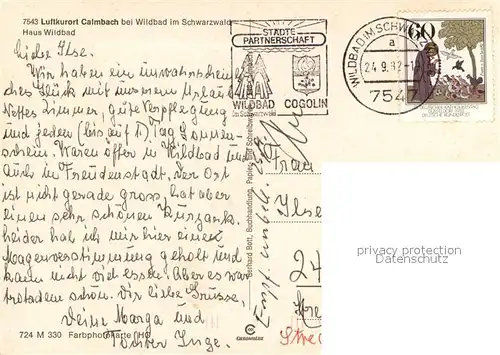 7543 Luftkurort Calmbach bei Wildbad im Schwarzwald
Haus Wildbad
Liebe Ilse.
Wir haben ein unwahrschein-
liches Glück mit unserem Urlaub
Nettes Zimmer, gute Verpflegung
und jeden (bis auf 1) Tag Sonnen-
schein. Waren öfter in Wildbad und
auch in Freudenstadt. Der Ort
ist nicht gerade gross, hat aber
einen sehr schönen Kurpark.
Leider hab ich mir hier einen
Magenverstimmung geholt und
kann nicht viel essen. Aber es war
trotzdem schön. Dir liebe Grüsse.
Deine Marga und
Tochter Inge.
724 M 330 Farbphotokarte
STÄDTE
PARTNERSCHAFT
WILDBAD
im Schwarzwald
COGOLIN
WILDBAD IM SCHW
a
24.9.82
7547
60
DEUTSCHE BUNDESPOST
Gerhard Bott, Buchhandlung, Papier- und Schreibwaren
Cramweiler
Frau
Ilse
24
privacy protection
oldthing.de